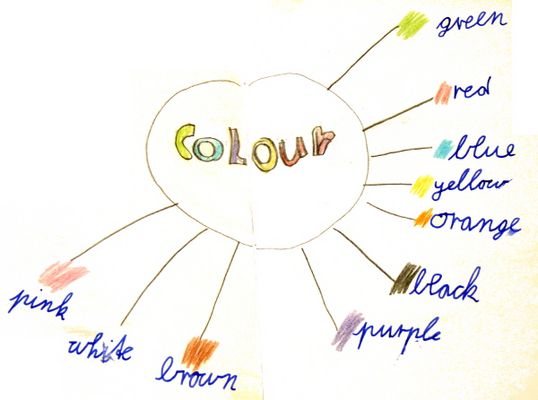 Colour
green
red
blue
yellow
orange
black
purple
brown
white
pink